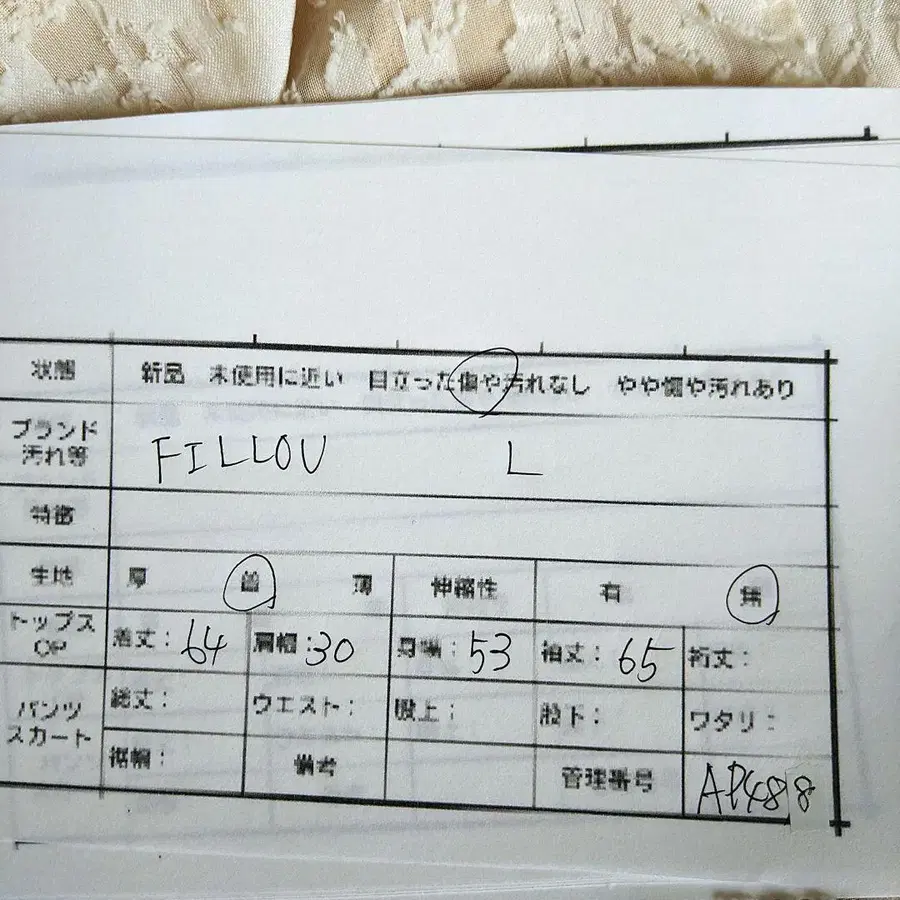 状態 新品 未使用に近い 目立った傷や汚れなし やや傷や汚れあり
ブランド
汚れ等 FILLOU L
特徴
生地 厚 普 薄 伸縮性 有 無
トップス
OP 着丈：64 肩幅：30 身幅：53 袖丈：65 裄丈：
パンツ
スカート 総丈： ウエスト： 股上： 股下： ワタリ：
裾幅： 備考 管理番号 AP488